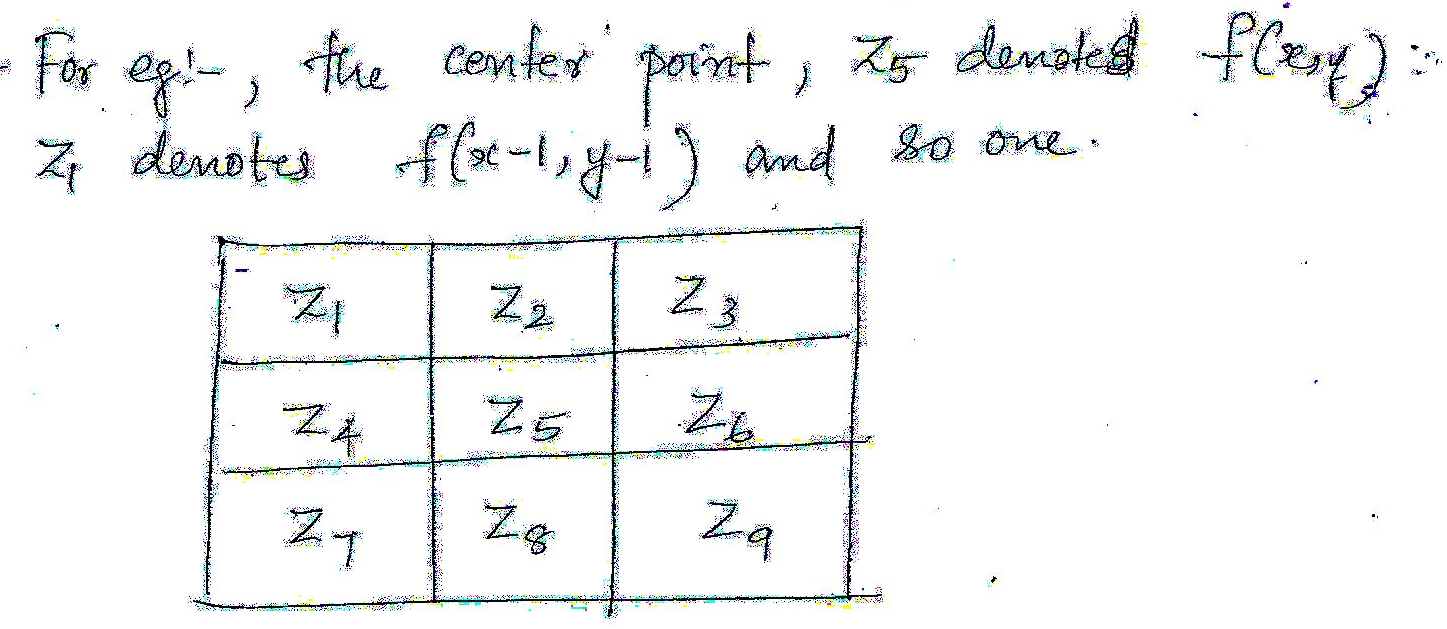 - For eg:-, the center point, Z5 denotes f(x,y);
Z1 denotes f(x-1, y-1) and so one.
Z1 Z2 Z3
Z4 Z5 Z6
Z7 Z8 Z9